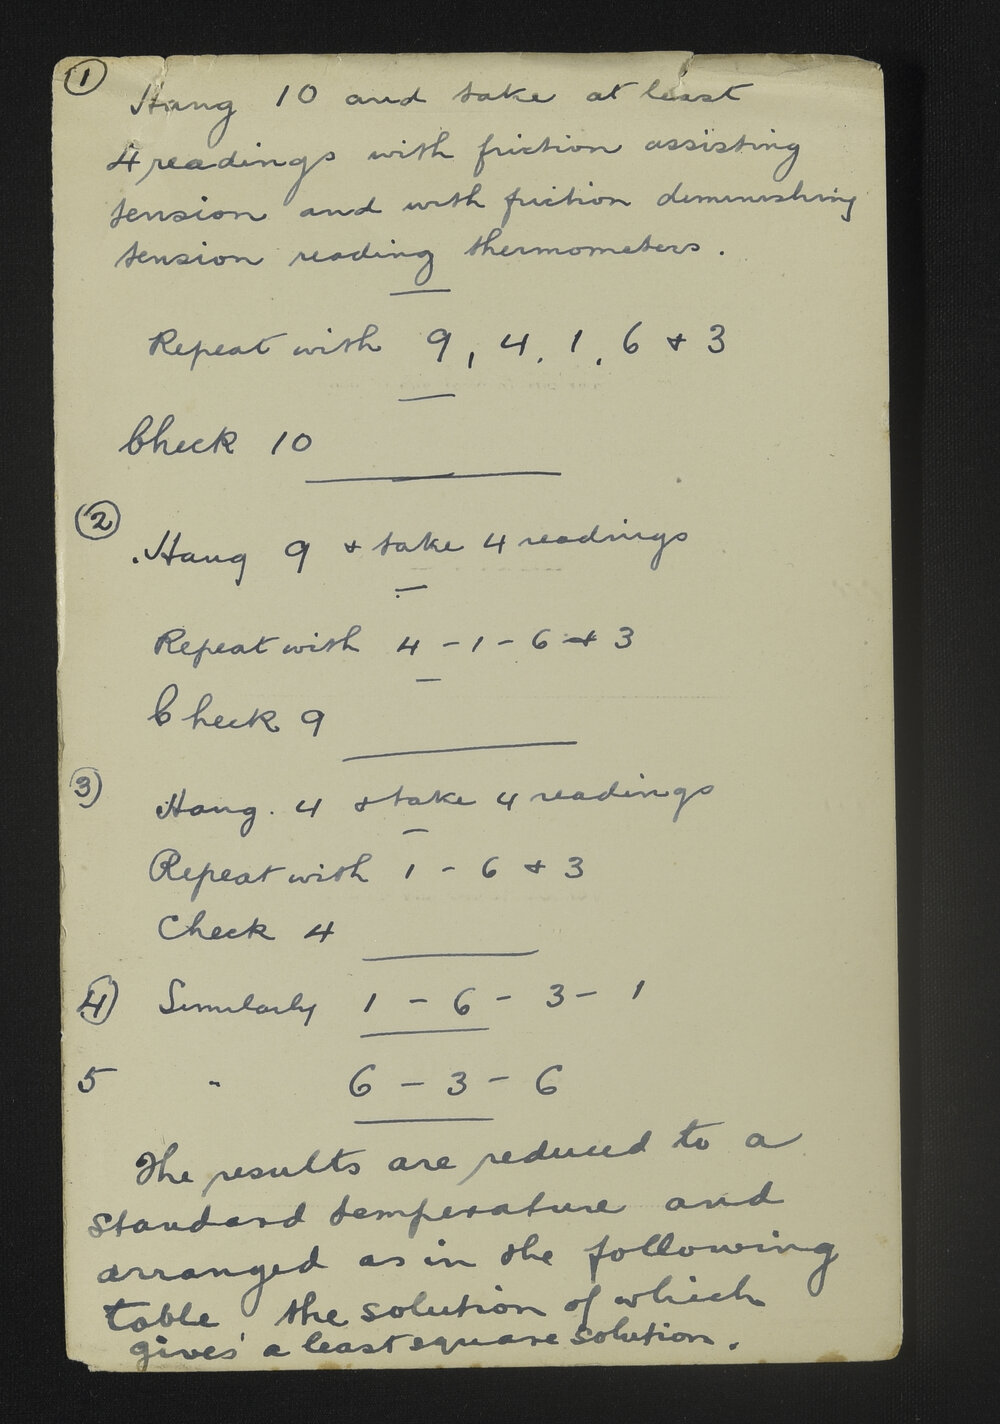 ① Hang 10 and take at least
4 readings with friction assisting
tension and with friction diminishing
tension reading thermometers.
Repeat with 9, 4, 1, 6 & 3
Check 10
② Hang 9 & take 4 readings
Repeat with 4 - 1 - 6 & 3
Check 9
③ Hang. 4 & take 4 readings
Repeat with 1 - 6 & 3
Check 4
④ Similarly 1 - 6 - 3 - 1
5 " 6 - 3 - 6
The results are reduced to a
standard temperature and
arranged as in the following
table the solution of which
gives a least square solution.